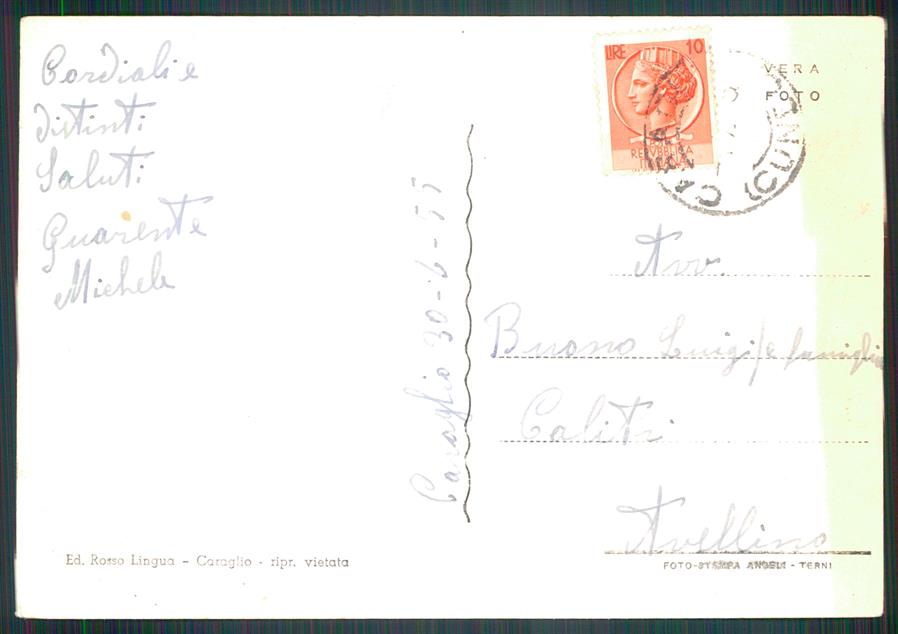 Cordiali e
distinti
Saluti
Guarente
Michele
Caraglio 30-6-55
Ed. Rosso Lingua - Caraglio - ripr. vietata
LIRE 10
REPVBBLICA
VERA
FOTO
(CUNEO
Avv.
Buono Luigi/e famiglia
Calitri
Avellino
FOTO-STAMPA ANGELI - TERNI